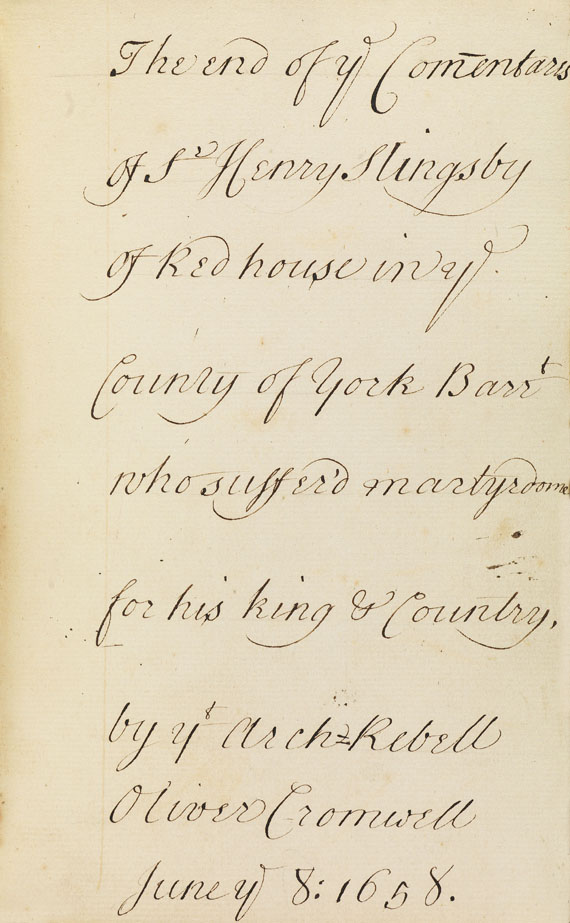 The end of yᵉ Com̄entaris
of Sʳ Henry Slingsby
of Red house in yᵉ
County of York Barrᵗ
who suffer'd martyrdome
for his king & Country,
by yᵗ Arch=Rebell
Oliver Cromwell
June yᵉ 8: 1658.